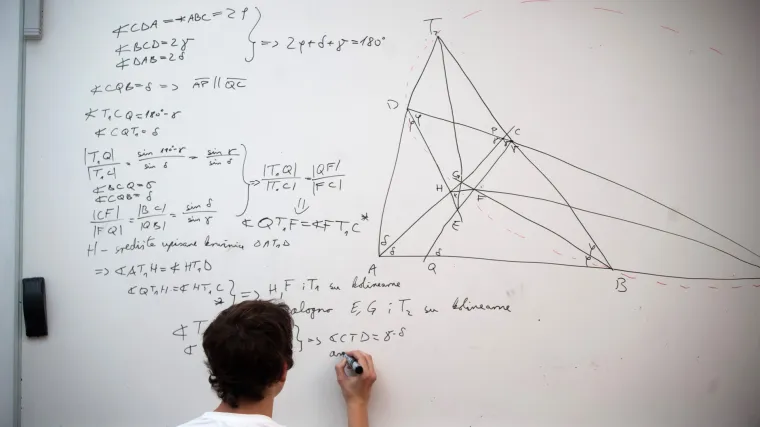 ∢CDA = ∢ABC = 2φ
∢BCD = 2γ
∢DAB = 2δ
=> 2φ+δ+γ = 180°
∢CQB = δ => AP || QC
∢T₁CQ = 180°-γ
∢CQT₁ = δ
|T₁Q| / |T₁C| = sin 180°-γ / sin δ = sin γ / sin δ
∢BCQ = γ
∢CQB = δ
|CF| / |FQ| = |BC| / |QB| = sin δ / sin γ
=> |T₁Q| / |T₁C| = |QF| / |FC|
=> ∢QT₁F = ∢FT₁C *
H - središte upisane kružnice ΔAT₁D
=> ∢AT₁H = ∢HT₁D
∢QT₁H = ∢HT₁C
=> H, F i T₁ su kolinearne
E, G i T₂ su kolinearne
∢T
=> ∢CTD = γ-δ
T₂
D
φ φ
P C
γ γ
G
H F
E
δ δ δ
φ φ
A Q B